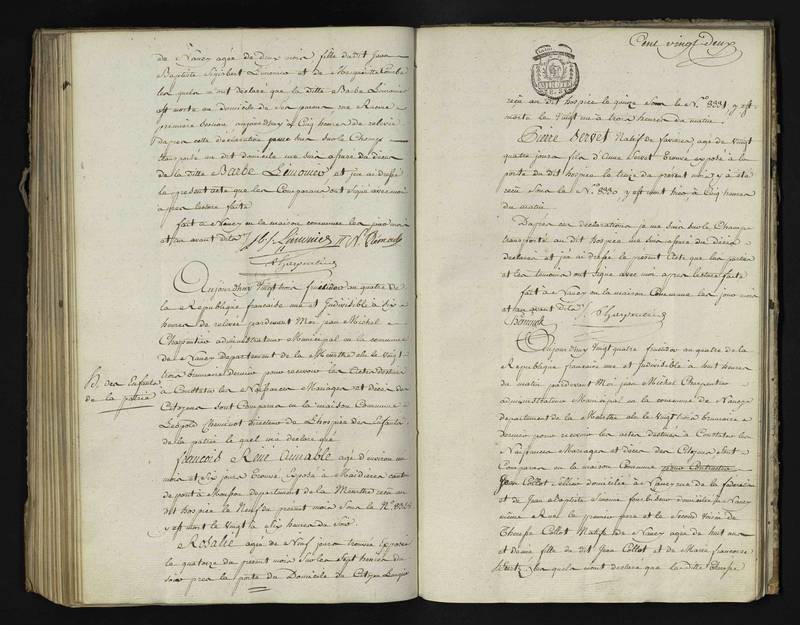 de Nancy agée de deux mois fille dudit Jean
Baptiste Sigisbert Limonier et de
les quels m'ont déclaré que la ditte Barbe Limonier
est morte au domicile de ses parens rue
première section aujourdhuy à Cinq heures de relevée
Daprès cette déclaration je me suis sur le Champ
transporté au dit domicile me suis assuré du décès
de la ditte Barbe Limonier et j'ai dressé
le présent acte que les Comparans ont signé avec moi
après lecture faite
fait à Nancy en la maison commune les jour mois
et an avant dits
Charpentier
Aujourdhuy vingt trois fructidor an quatre de
la République française une et Indivisible à six
heures de relevée pardevant Moi jean Michel
Charpentier administrateur Municipal en la commune
de Nancy Departement de la Meurthe élu le vingt
trois brumaire dernier pour recevoir les actes destinés
à Constater les Naissances Mariages et décès des
Citoyens sont Comparus en la maison Commune
Léopold Chenicot directeur de L'hospice des Enfants
de la patrie le quel m'a déclaré que
h. des Enfants
de la patrie
françois René Aimable agé d'environ un
mois et six jours trouvé Exposé à Maidières canton
de pont à Mousson departement de la Meurthe reçu au
dit hospice le Neuf du présent mois sous le N.
y est mort le vingt à Six heures du Soir
Rosalie agée de Neuf jours trouvée Exposée
le quatorze du present mois sur les Sept heures du
soir près la porte du Domicile du Citoyen
Cent vingt deux
reçu au dit hospice le quinze sous le N.° 8331 y est
morte le vingt un à trois heures du matin
Pierre Servet Natif de agé de vingt
quatre jours fils d'Anne Servet trouvé exposé à la
porte du dit hospice le treize du présent mois y a été
reçu sous le N.° 8330 y est mort hier à Cinq heures
du matin
Daprès ces déclarations je me suis sur le Champ
transporté au dit hospice me suis assuré des décès
déclarés et j'ai dressé le présent Acte que les parties
et les témoins ont signé avec moi après lecture faite
fait à Nancy en la maison Commune les jour mois
et an avant dits Charpentier
Chenicot
Aujourdhuy vingt quatre fructidor an quatre de la
République française une et Indivisible à huit heures
du matin pardevant Moi jean Michel Charpentier
administrateur Municipal en la commune de Nancy
departement de la Meurthe élu le vingt trois brumaire
dernier pour recevoir les actes destinés à Constater les
Naissances Mariages et décès des Citoyens sont
Comparus en la maison Commune
Jean Collot domicilié à Nancy rue de la fédération
et de Jean Baptiste Simone domicilié à Nancy
même Rue le premier père et le Second voisin de
Therese Collot Native de Nancy agée de huit ans
et demie fille de dit Jean Collot et de Marie françoise
les quels m'ont déclaré que la ditte Therese